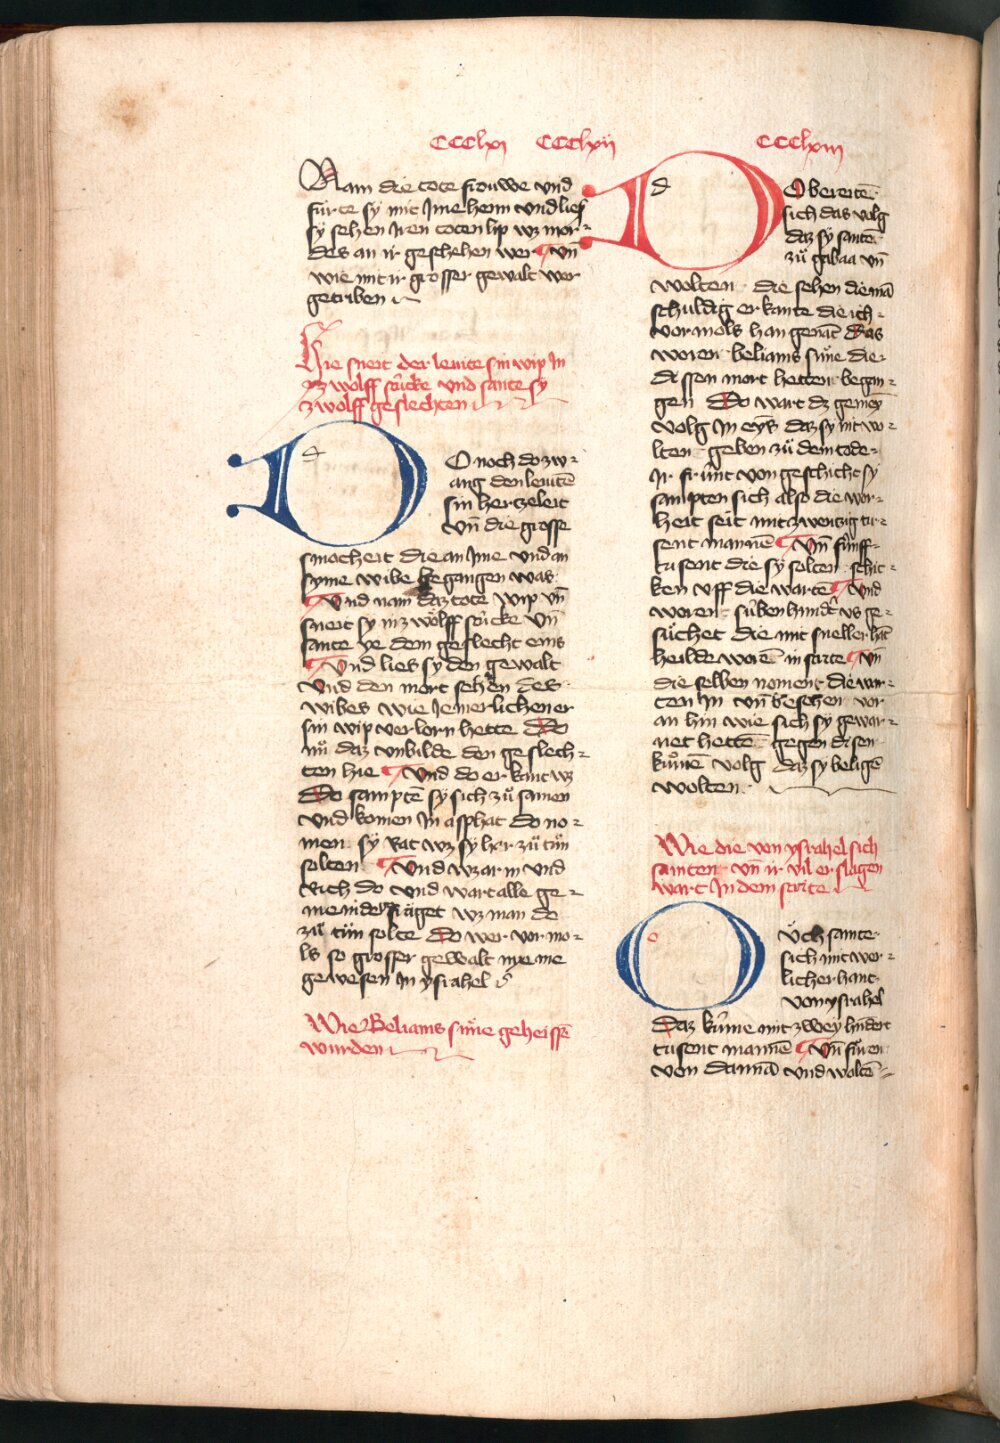 CCClxi CCClxii CCClxiii
Nam die tote frouwe vnd
fürte sy mit Jme heim vnd lies
sy sehen Jren toten lip wz mor-
des an ir geschehen wer vn̄
wie mit ir grosser gewalt wer
getriben
Hie sneit der leuite sin wip In
zwolff stücke vnd sante sy
zwolff geslechten
DO noch do zw-
ang den leuitē
sin hertzeleit
vn̄ die grosse
smocheit die an Jme vnd an
syme wibe begangen was
Vnd nam daz tote wip vn̄
sneit sy in zwölff stücke vn̄
sante ye dem geslecht eins
Vnd lies sy den gewalt
vnd den mort sehen des
wibes wie Jemerlichen er
sin wip verlorn hette Do
nů daz vnbilde den geslech-
ten hie Vnd do er kant wz
Do samptē sy sich zů samen
vnd komen In asphat do no-
men sy Rat wz sy her zů tůn
solten Vnd wz arm vnd
Rich do vnd wart alle ge-
meinde gefräget wz man do
zů tůn solte Do wer vor mo-
ls so grosser gewalt nye me
gewesen In ysrahel
Wie Beliams süne geheissē
wurden
DO bereitē
sich das volg
daz sy santē
zů gabaa vn̄
wolten die sehen die mā
schuldig erkante die ich
vormols han genāt Das
woren beliams sůne die
dissen mort hetten began-
gen Do wart dz gemey
volg In eyn daz sy nit wo-
lten geben zů dem tode
Jr frünt von geschicht sy
sampten sich also die wor-
heit seit mit zwentzig tu-
sent mannē Vn̄ fünff-
tusent die sy solten schic-
ken vff die wartē Vnd
woren süben hundt vs ge-
süchet die mit sneller hāt
heilde worē in strite Vn̄
die selben noment die war-
ten In vn̄ besehen vor
an hin wie sich sy gewar-
net hettē gegen disen
kůnē volg daz sy beligē
wolten
Wie die von ysrahel sich
samten vn̄ ir vil erslagen
wart In dem strite
OVch samte
sich mit wer-
licher hant
von ysrahel
Daz küme mit zwey hundert
tusent mannē Vn̄ fůren
von dannā vnd woltē